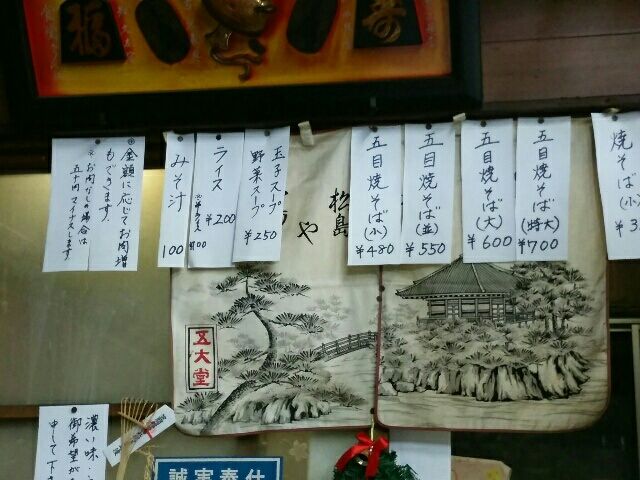 福
寿
◎金額に応じてお肉増
もできます。
※お肉なし場合は
五十円マイナスします
みそ汁
100
ライス
¥200
※半ライス ¥100
玉子スープ
野菜スープ
¥250
松島
や
五目焼そば
(小)
¥480
五目焼そば
(並)
¥550
五目焼そば
(大)
¥600
五目焼そば
(特大)
¥700
焼そば
(小)
五大堂
濃い味
御希望が
申して下さ
誠実奉仕